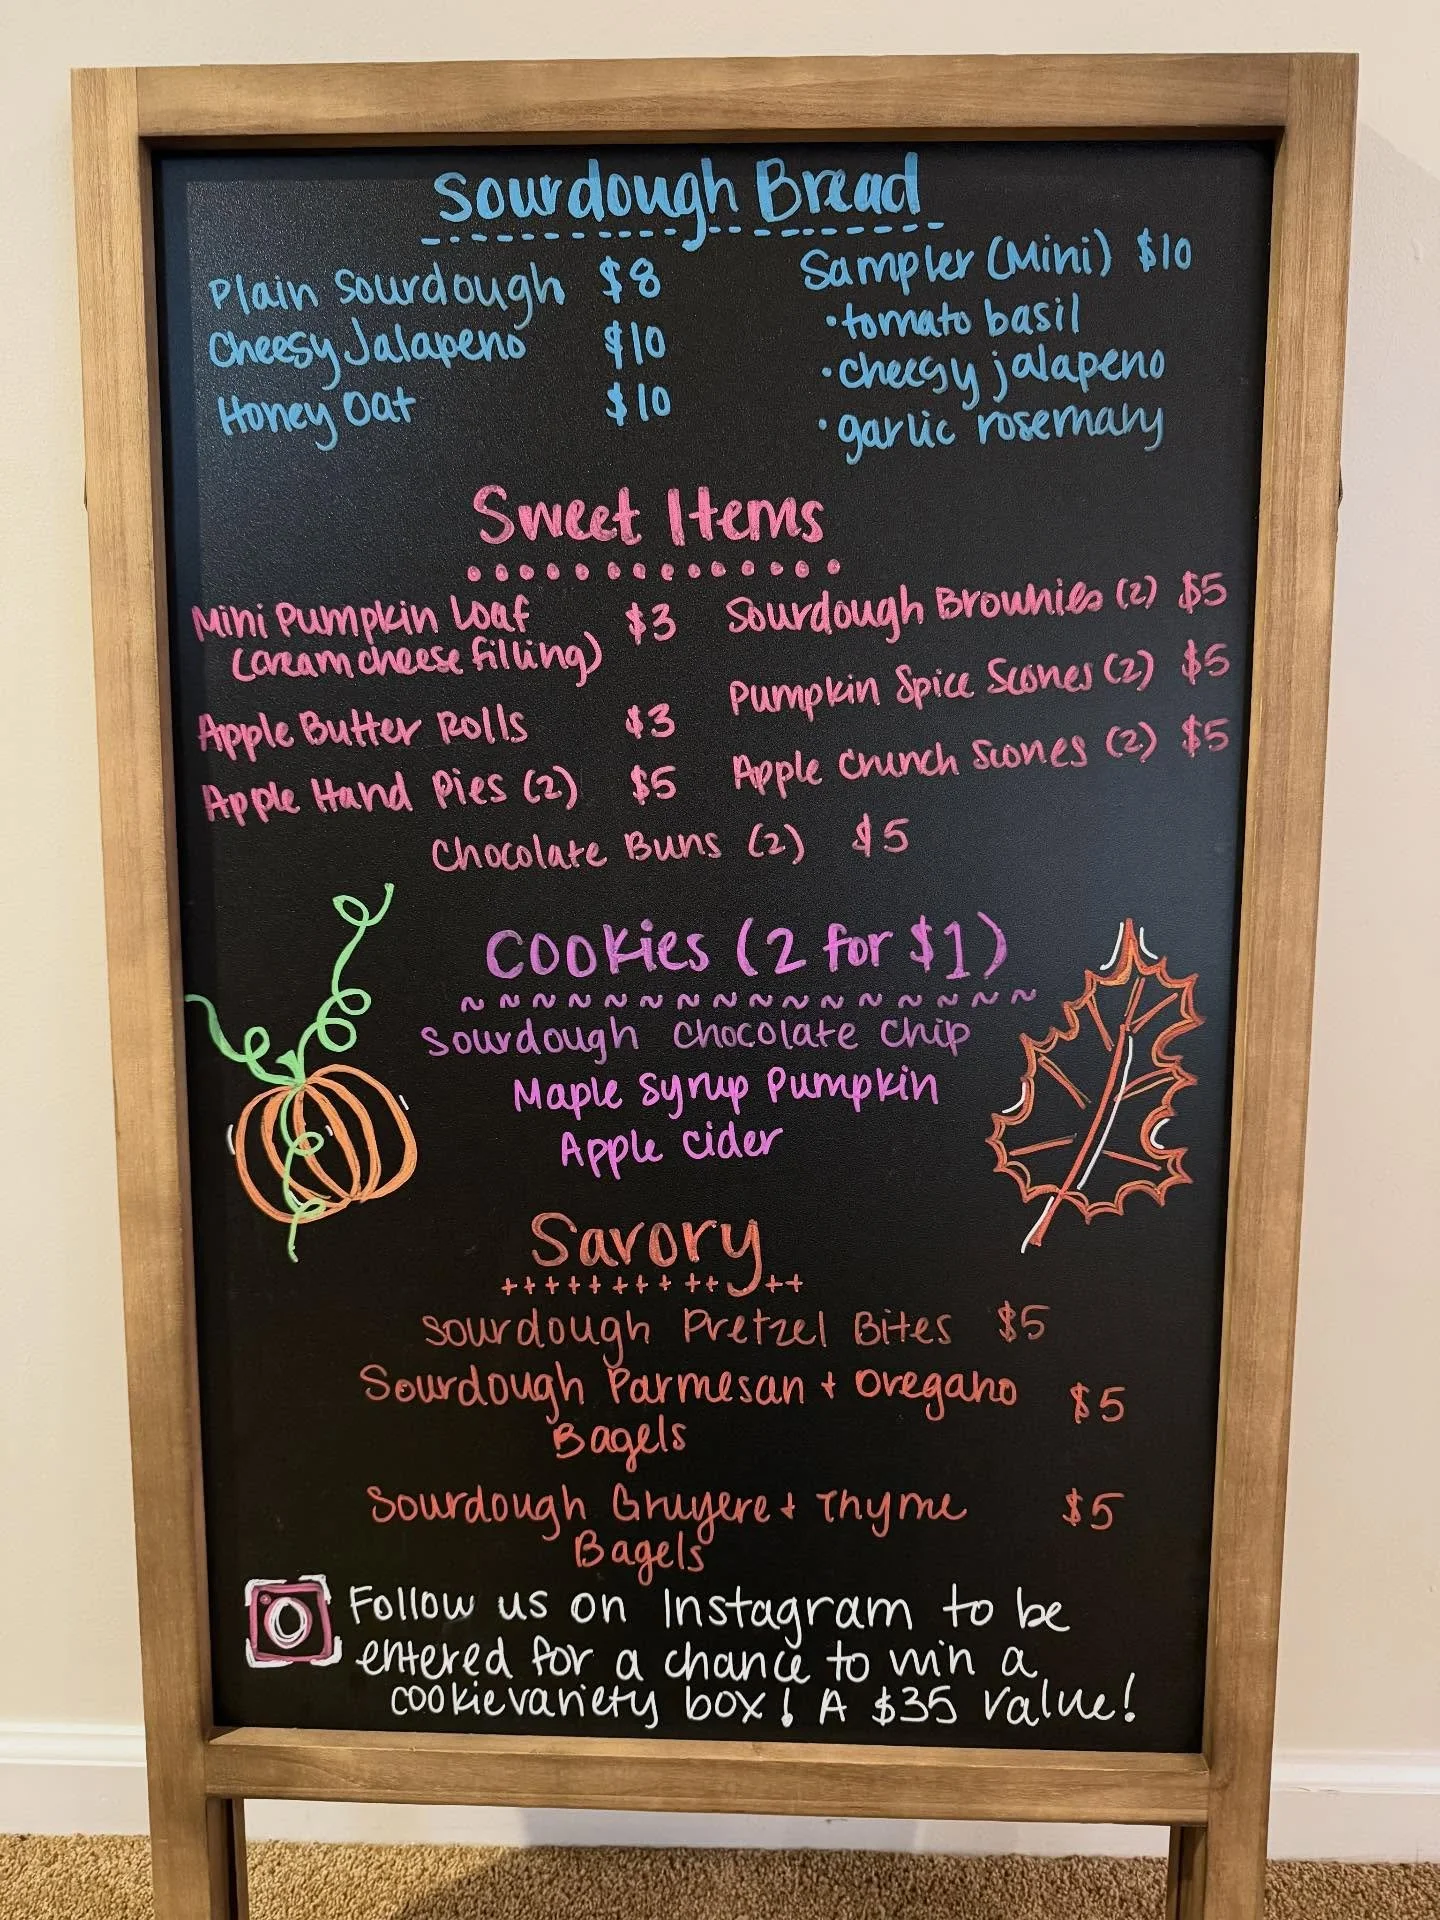 Sourdough Bread
Plain Sourdough $8
Cheesy Jalapeno $10
Honey Oat $10
Sampler (Mini) $10
•tomato basil
•cheesy jalapeno
•garlic rosemary
Sweet Items
Mini Pumpkin Loaf $3
(cream cheese filling)
Apple Butter Rolls $3
Apple Hand Pies (2) $5
Sourdough Brownies (2) $5
Pumpkin Spice Scones (2) $5
Apple Crunch Scones (2) $5
Chocolate Buns (2) $5
Cookies (2 for $1)
Sourdough Chocolate Chip
Maple Syrup Pumpkin
Apple Cider
Savory
Sourdough Pretzel Bites $5
Sourdough Parmesan + Oregano $5
Bagels
Sourdough Gruyere + Thyme $5
Bagels
Follow us on Instagram to be
entered for a chance to win a
cookie variety box! A $35 value!